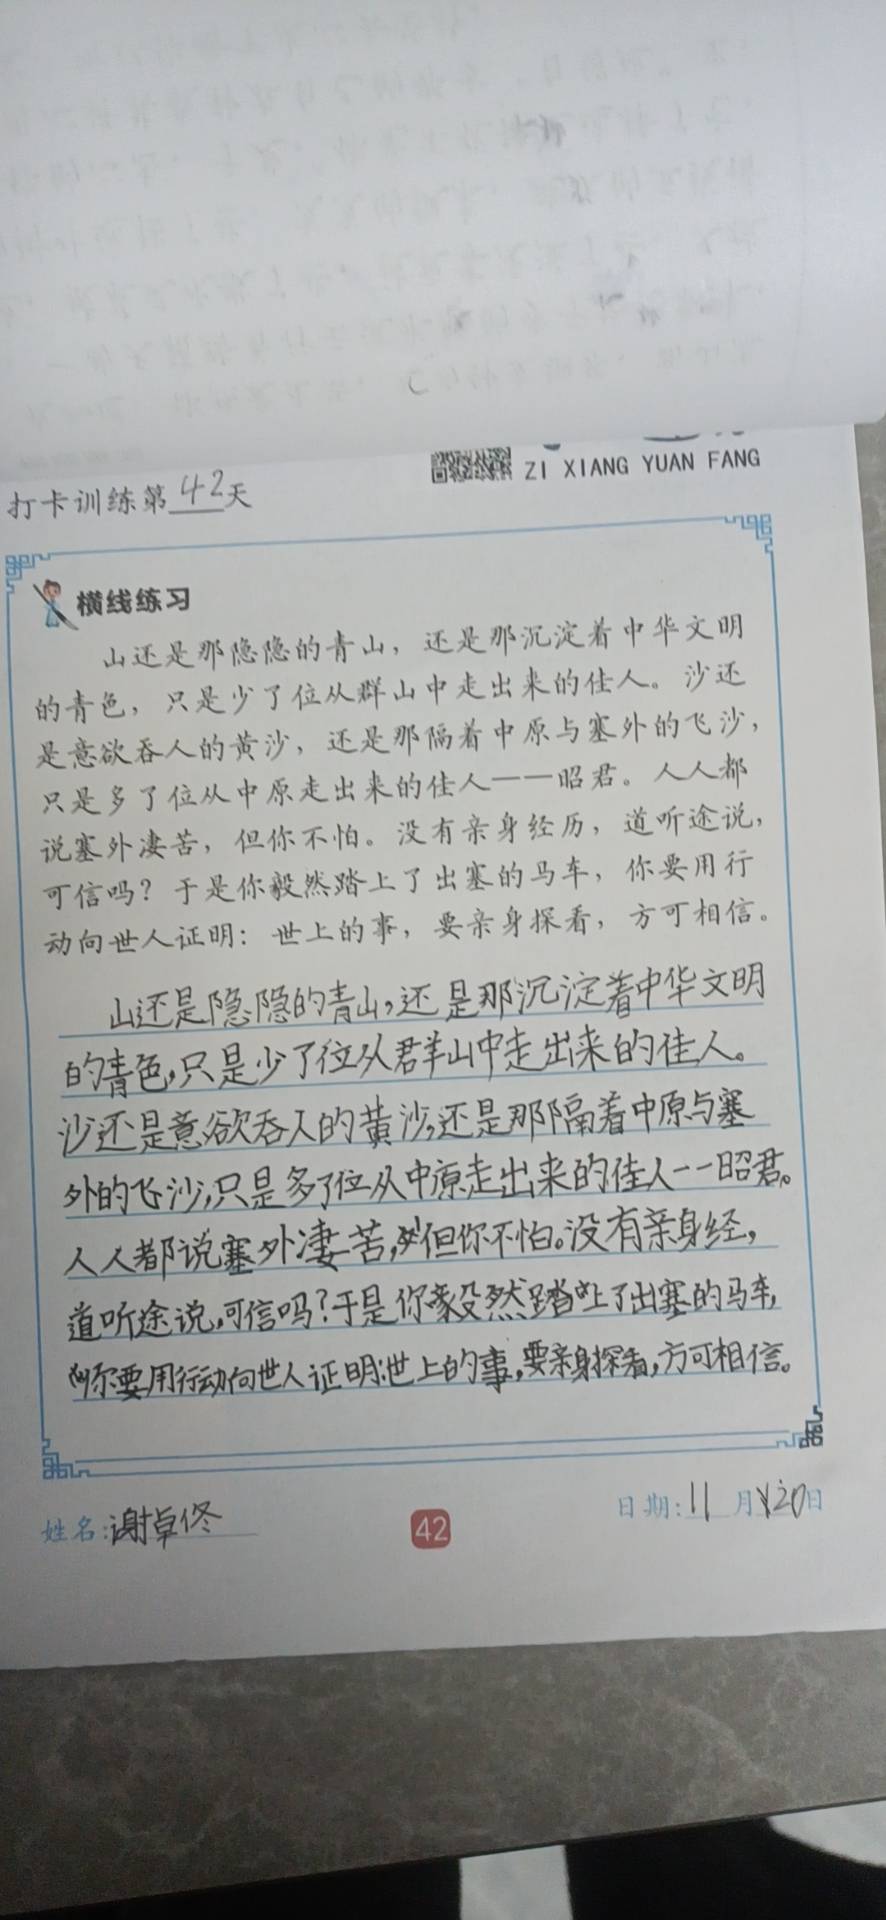 ZI XIANG YUAN FANG
打卡训练第42天
横线练习
山还是那隐隐的青山，还是那沉淀着中华文明
的青色，只是少了位从群山中走出来的佳人。沙还
是意欲吞人的黄沙，还是那隔着中原与塞外的飞沙，
只是多了位从中原走出来的佳人——昭君。人人都
说塞外凄苦，但你不怕。没有亲身经历，道听途说，
可信吗？于是你毅然踏上了出塞的马车，你要用行
动向世人证明：世上的事，要亲身探看，方可相信。
山还是隐隐的青山，还是那沉淀着中华文明
的青色，只是少了位从群山中走出来的佳人。
沙还是意欲吞人的黄沙，还是那隔着中原与塞
外的飞沙，只是多了位从中原走出来的佳人一一昭君。
人人都说塞外凄苦，但你不怕。没有亲身经，
道听途说，可信吗？于是你毅然踏上了出塞的马车，
你要用行动向世人证明：世上的事，要亲身探看，方可相信。
姓名：谢卓佟
42
日期：11月20日